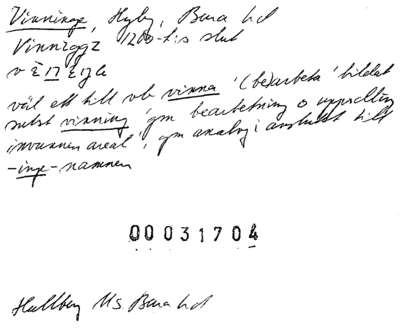 Vinninge, Hyby, Bara hd
Vinninge 1200-t:s slut
väl ett till vb vinna '(be)arbeta' bildat
subst vinning 'gm bearbetning o uppodling
invunnen areal', gm analogi anslutet till
-inge-namnen
00031704
Hallberg Ms Bara hd